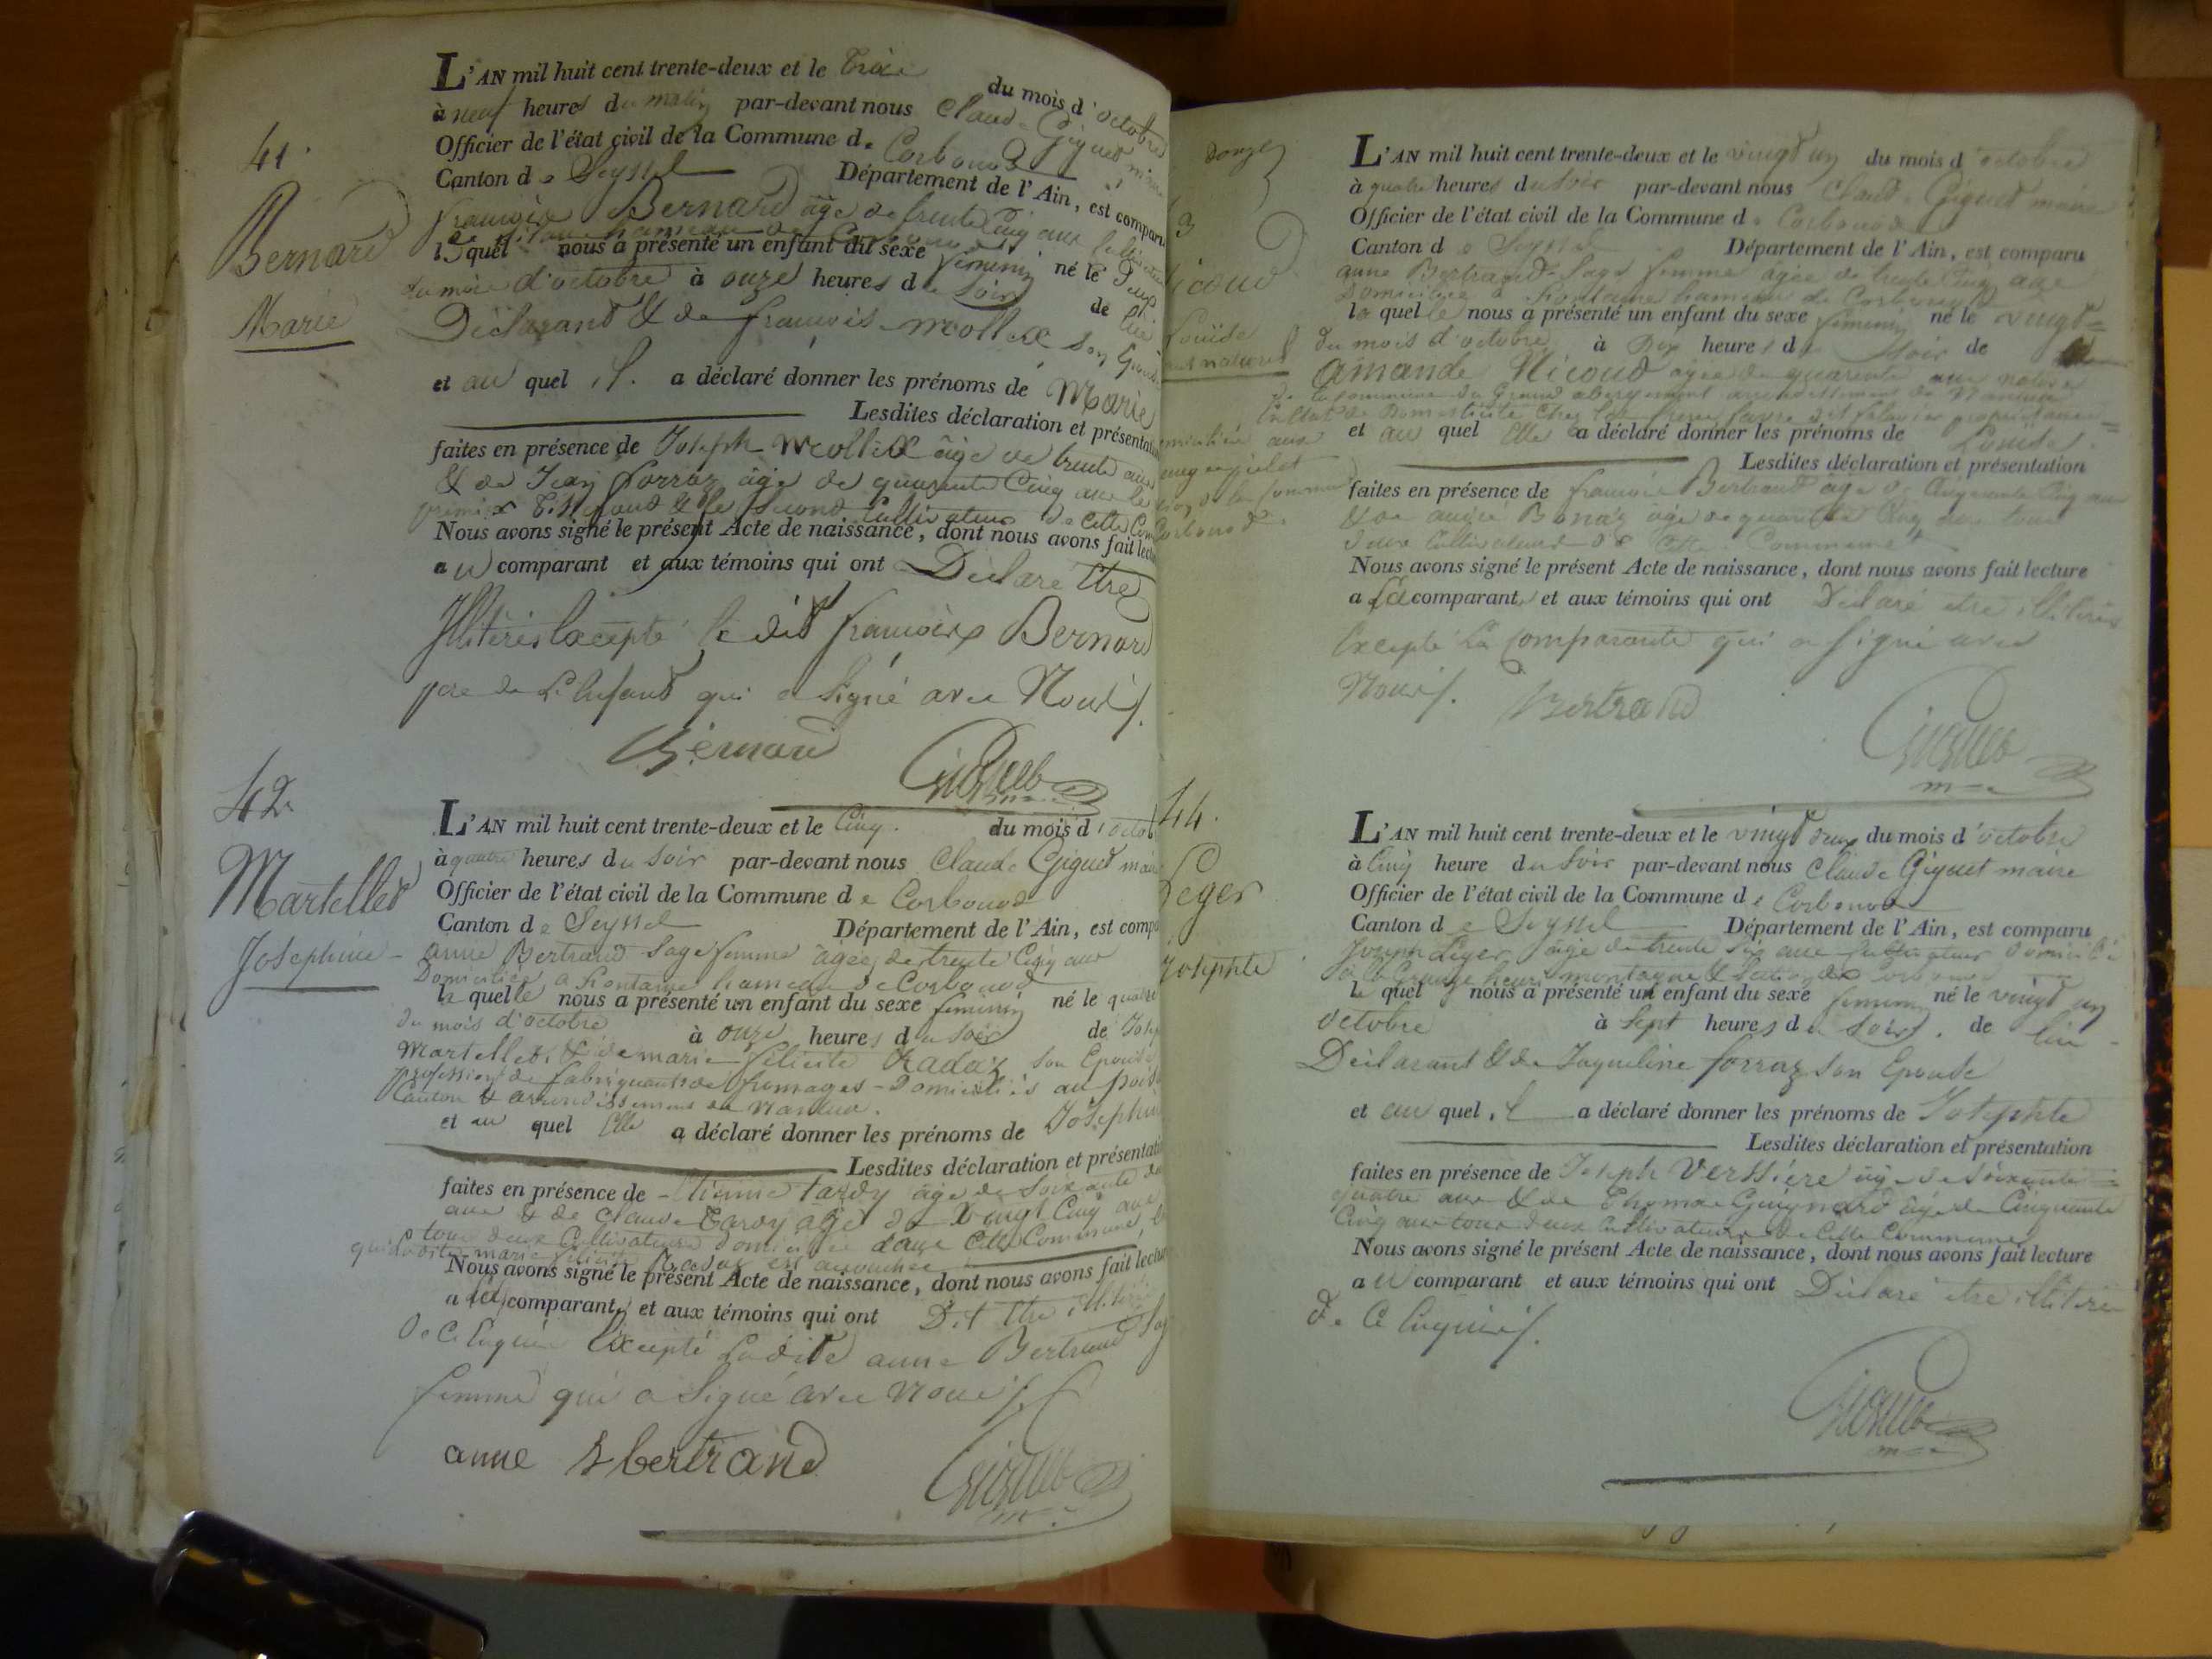 41.
Bernard
Marie
L'AN mil huit cent trente-deux et le trois du mois d'octobre
à neuf heures du matin par-devant nous Claude Giguet maire
Officier de l'état civil de la Commune de Corbonod
Canton de Seyssel Département de l'Ain, est comparu
françois Bernard âgé de trente Cinq ans
lequel nous a présenté un enfant du sexe féminin né le Deux
du mois d'octobre à onze heures du soir de lui
Déclarant & de françoise mollex son
et au quel il a déclaré donner les prénoms de Marie
Lesdites déclaration et présentation
faites en présence de Joseph mollex âgé de trente ans
& de Jean forraz âgé de quarante Cinq ans le
premier tisserand & le second Cultivateur de cette
Nous avons signé le présent Acte de naissance, dont nous avons fait lecture
au comparant et aux témoins qui ont Déclaré être
Illitérés Excepté le dit françois Bernard
père de L'enfant qui a signé avec Nous
Bernard Giguet
42.
Martellet
Josephine
L'AN mil huit cent trente-deux et le Cinq du mois d'octob
à quatre heures du soir par-devant nous Claude Giguet maire
Officier de l'état civil de la Commune de Corbonod
Canton de Seyssel Département de l'Ain, est comp
anne Bertrand sage femme âgée de trente Cinq ans
Domiciliée a fontaine hameau de Corbonod
la quelle nous a présenté un enfant du sexe féminin né le quatre
du mois d'octobre à onze heures du soir de Josep
Martellet & de marie félicité Radaz son Epouse
profession de fabriquants de fromages Domiciliés au poisa
Canton & arrondissement de Nantua.
et au quel Elle a déclaré donner les prénoms de Josephine
Lesdites déclaration et présentati
faites en présence de Etienne tardy âgé de soixante
ans & de Claude tardy âgé de vingt Cinq ans
tous deux Cultivateurs domiciliés dans Cette Commune
marie félicité Radaz est accouchée
Nous avons signé le présent Acte de naissance, dont nous avons fait lectur
a la comparant, et aux témoins qui ont Dit être illitérés
De Ce Enquis Excepté Ladite anne Bertrand Sag
femme qui a signé avec nous
anne bertrand Giguet
L'AN mil huit cent trente-deux et le vingt un du mois d'octobre
à quatre heures du soir par-devant nous Claude Giguet maire
Officier de l'état civil de la Commune de Corbonod
Canton de Seyssel Département de l'Ain, est comparu
anne Bertrand Sage femme âgée de trente Cinq ans
Domiciliée a fontaine hameau de Corbonod
la quelle nous a présenté un enfant du sexe féminin né le vingt
du mois d'octobre à Dix heures du soir de
amande Nicoud agée de quarante ans native
de la commune du Grand abergement arrondissement de Nantua
et au quel Elle a déclaré donner les prénoms de Louïde
Lesdites déclaration et présentation
faites en présence de françois Bertrand âgé de Cinquante Cinq ans
& de andré Bonaz âgé de quarante Cinq ans tous
deux Cultivateurs de Cette Commune
Nous avons signé le présent Acte de naissance, dont nous avons fait lecture
a la comparant, et aux témoins qui ont Déclaré être illitérés
Excepté La Comparante qui a signé avec
Nous
Bertrand Giguet
44.
Leger
Josephte
L'AN mil huit cent trente-deux et le vingt deux du mois d'octobre
à Cinq heure du soir par-devant nous Claude Giguet maire
Officier de l'état civil de la Commune de Corbonod
Canton de Seyssel Département de l'Ain, est comparu
Joseph Leger âgé de trente six ans Cultivateur Domicilié
le quel nous a présenté un enfant du sexe féminin né le vingt un
octobre à sept heures du soir de lui
Déclarant & de Jaqueline forraz son Epouse
et au quel il a déclaré donner les prénoms de Josephte
Lesdites déclaration et présentation
faites en présence de Joseph Verssiere âgé de soixante
quatre ans & de Thomas Guignard âgé de Cinquante
Cinq ans tous deux Cultivateurs de Cette Commune
Nous avons signé le présent Acte de naissance, dont nous avons fait lecture
au comparant et aux témoins qui ont Déclaré être illitérés
De Ce Enquis
Giguet